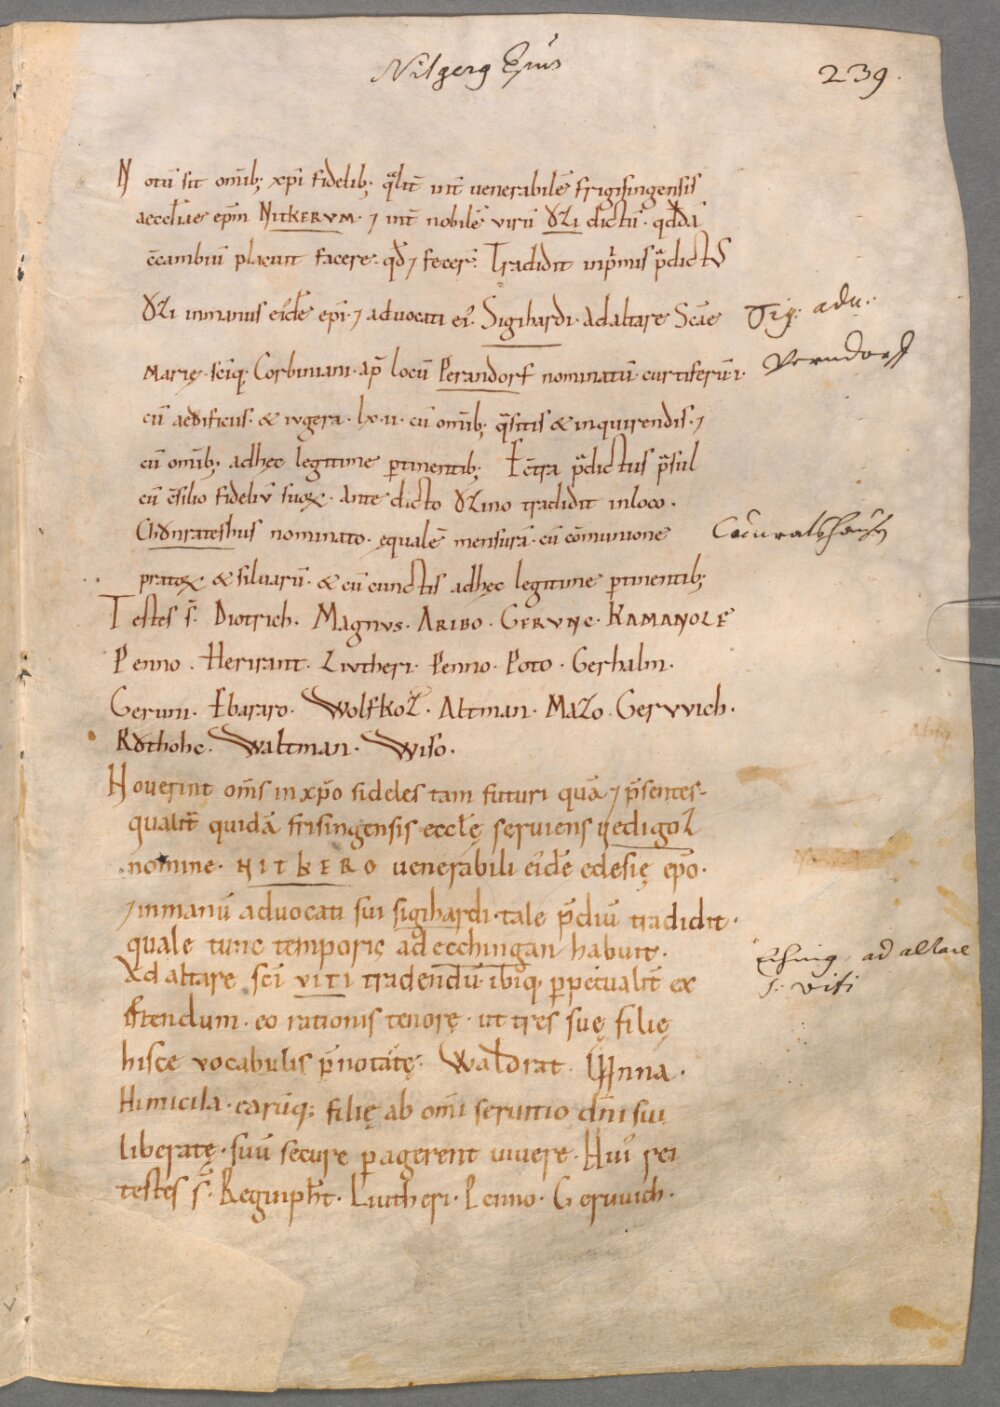 Nitgerg Epūs
239.
Notū sit omīb; xp̄i fidelib; qͣlit̄ int̄ uenerabilē frigisingensis
aeccl̄iae ep̄m NITKERVM · ⁊ int̄ nobilē virū Ȣzi dictū · qd̄dā
c̄cambiū placuit facere · qd̄ ⁊ fecer̄ · Tradidit inp̄mis p̄dictus
Ȣzi inmanus eid̄e ep̄i · ⁊ advocati ei᾽ · Sigihardi · Ad altare Sc̄ae
Marię · sc̄iq · Corbiniani · ap̄ locū Perandorf nominatū · curtiferū · ı ·
Sig: adu.
Perndorff
cū aedificiis · & iugera · lx · u · cū omīb; qͣsitis & inquirendis · ⁊
cū omīb; adhec legitime p̄tinentib; Ec̄tra p̄dictus p̄sul
cū c̄silio fideliū suoꝝ · Ante dicto Ȣzino tradidit inloco ·
Chȣnrateshus nominato · equalē mensurā · cū cōmunione
Conratshausen
pratoꝝ & siluarū · & cū cunctis adhec legitime p̄tinentib;
Testes s̄ · Diotrich · Magnvs · ARIBO · GERVNC · KAMANOLF
Penno · Herirant · Liutheri · Penno · Poto · Gerhalm ·
Geruni · Ebararo · Wolfkoz · Altman · Mazo · Gervvich ·
Rȣthohc · Waltman · Wiso ·
Nouerint om̄s inxp̄o fideles tam futuri quā ⁊ p̄sentes ·
qualit̄ quidā frisingensis eccl̄ę seruiens uedigoz
nomine · NITKERO uenerabili eid̄e eclesię ep̄o ·
⁊ inmanū aduocati sui sigihardi · tale p̄diū tradidit ·
quale tunc temporis ad ecchingan habuit ·
Ad altare sc̄i VITI tradendū · ibiq, p̄petualit̄ ex
Eching, ad altare
S. viti
sistendum · eo rationis tenorę · ut tres suę filię
hisce vocabulis p̄notatę · Waldrat · Anna ·
Himicila · earūq; filię ab omī seruitio dn̄i sui
liberatę · suū secure p̄agerent uiuere · Hui᾽ rei
testes s̄ · Reginpht̄ · Liutheri · Penno · Geruuich ·